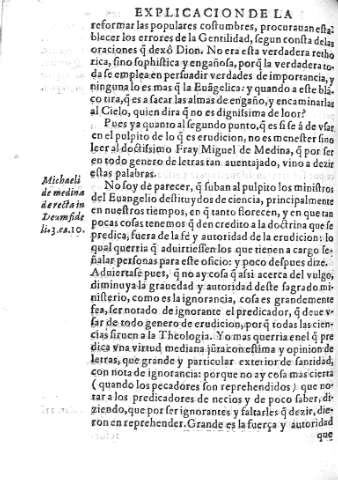 EXPLICACION DE LA
reformar las populares costumbres, procurauan esta-
blecer los errores de la Gentilidad, segun consta de las
oraciones q̃ dexò Dion. No era esta verdadera retho
rica, sino sophistica y engañosa, porq̃ la verdadera to-
da se emplea en persuadir verdades de importancia, y
ninguna lo es mas q̃ la Euãgelica: y quando a este blã-
co tira, q̃ es a sacar las almas de engaño, y encaminarlas
al Cielo, quien dira q̃ no es dignissima de loor?
Pues ya quanto al segundo punto, q̃ es si se à de vsar
en el pulpito de lo q̃ es erudicion, no es menester sino
leer al doctissimo Fray Miguel de Medina, q̃ por ser
en todo genero de letras tan auentajado, vino a dezir
estas palabras.
Michaeli
de medina
de recta in
Deum fide
li. 3. ca. 10.
No soy de parecer, q̃ suban al pulpito los ministros
del Euangelio destituydos de ciencia, principalmente
en nuestros tiempos, en q̃ tanto florecen, y en que tan
pocas cosas tenemos q̃ den credito a la doctrina que se
predica, fuera de la fé y autoridad de la erudicion: lo
qual querria q̃ aduirtiessen los que tienen a cargo se-
ñalar personas para este oficio: y poco despues dize.
Aduiertase pues, q̃ no ay cosa q̃ assi acerca del vulgo,
diminuya la grauedad y autoridad deste sagrado mi-
nisterio, como es la ignorancia, cosa es grandemente
fea, ser notado de ignorante el predicador, q̃ deue v-
sar de todo genero de erudicion, porq̃ todas las cien-
cias siruen a la Theologia. Yo mas querria en el q̃ pre
dica vna virtud mediana jũta con estima y opinion de
letras, que grande y particular exterior de santidad,
con nota de ignorancia: porque no ay cosa mas cierta
( quando los pecadores son reprehendidos ) que no-
tar a los predicadores de necios y de poco saber, di-
ziendo, que por ser ignorantes y faltarles q̃ dezir, die-
ron en reprehender. Grande es la fuerça y autoridad
que